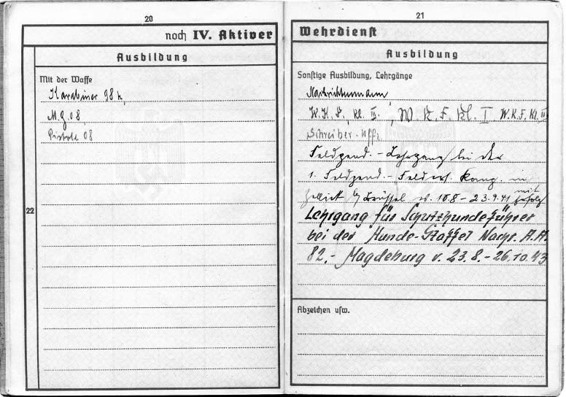 20
noch IV. Aktiver
Ausbildung
Mit der Waffe
Karabiner 98 k,
M.G 08,
Pistole 08
22
21
Wehrdienst
Ausbildung
Sonstige Ausbildung, Lehrgänge
Nachrichtenmann
W.K.F. Kl. I W.K.F. Kl. II
Schreiber-Uffz.
Feldgend.-Lehrgang bei der
1. Feldgend.- v. 10.8-23.9.41 mit
Lehrgang für Schutzhundeführer
bei der Hunde-Staffel Nachr. A.A.
82.- Magdeburg v. 23.8.-26.10.43
Abzeichen usw.